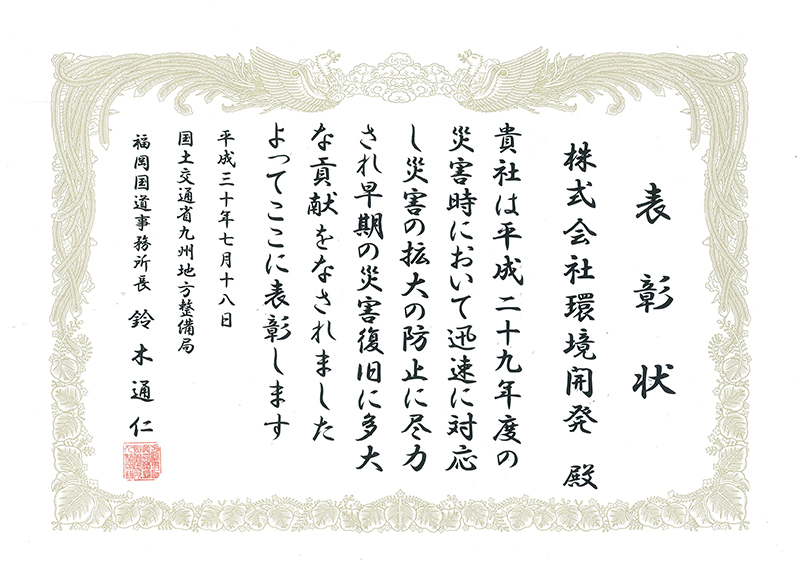 表彰状
株式会社環境開発 殿
貴社は平成二十九年度の
災害時において迅速に対応
し災害の拡大の防止に尽力
され早期の災害復旧に多大
な貢献をなされました
よってここに表彰します
平成三十年七月十八日
国土交通省九州地方整備局
福岡国道事務所長 鈴木通仁